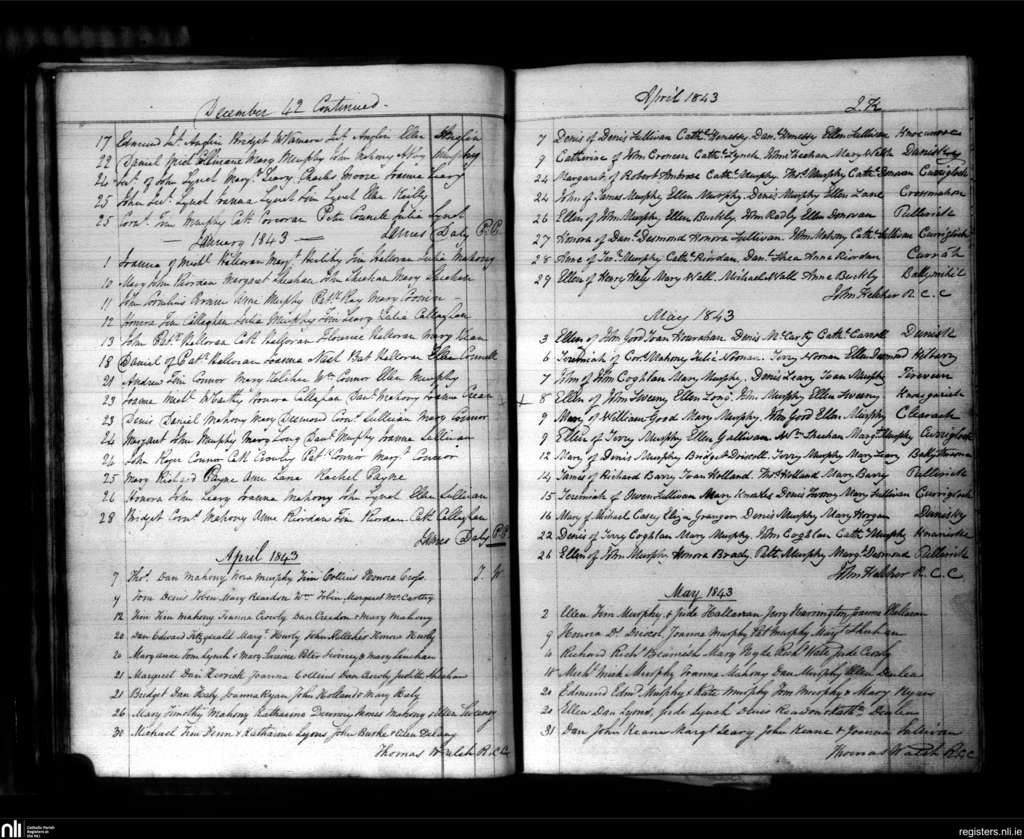 December 42 Continued.
17 Edmund Jas. Anglin Bridget McNamara Jas. Anglin Ellen Anglin
22 Daniel Mich. Mary Murphy John Mahony Abby Murphy
24 of John Lynch Margt. Leary Charles Moore Joanna Leary
25 John Lynch Joanna Lynch Tim Lynch Ellen Reilly
25 Corns. Tim Murphy Cath Corcoran Peter Connell Julia Lynch
James Daly P.P.
January 1843
1 Joanna of Michl. Halloran Margt. Herlihy Tim Halloran Julia Mahony
10 Mary John Riordan Margaret Sheehan John Sheehan Mary Sheehan
11 John Cornelius Anne Murphy Patk. Ray Mary
12 Honora Tim Callaghan Julia Murphy Tim Leary Julia Callaghan
13 John Patk. Halloran Cath Halloran Florence Halloran Mary Kean
18 Daniel of Patk. Halloran Joanna Neil Bat Halloran Ellen Connell
21 Andrew Tim Connor Mary Kelleher Wm Connor Ellen Murphy
23 Joanna Michl. McCarthy Honora Callaghan Danl. Mahony Joanna Crean
23 Denis Daniel Mahony Mary Desmond Corns. Sullivan Mary Connor
24 Margaret John Murphy Mary Long Danl. Murphy Joanna Sullivan
26 John Roger Connor Cath Crowley Patk. Connor Margt. Connor
25 Mary Richard Payne Ann Lane Rachel Payne
26 Honora John Leary Joanna Mahony John Lynch Ellen Sullivan
28 Bridget Corns. Mahony Anne Riordan Tim Riordan Cath Callaghan
James Daly P.P.
April 1843
7 Thos. Dan Mahony Nora Murphy Tim Collins Honora Cross. T. W
9 Tom Denis Tobin Mary Reardon Wm Tobin Margaret McCarthy
12 Tim Tim Mahony Joanna Crowly Dan Creedon & Mary Mahony
20 Dan Edward Fitzgerald Margt. Hurly John Kelleher Honora Hurly
20 Maryanne Tom Lynch & Mary Peter Sweeney & Mary Lenehan
21 Margaret Dan Herrick Joanna Collins Dan Crowly Judith Sheehan
21 Bridget Dan Healy Joanna Ryan John Holland & Mary Healy
26 Mary Timothy Mahony Katharine James Mahony & Ellen Sweeney
30 Michael Tim Dunn & Katharine Lyons John Burke & Ellen Delany
Thomas Walsh R.C.C.
April 1843 J. K
7 Denis of Denis Sullivan Cathe. Henessy Danl. Henessy Ellen Sullivan
9 Catherine of Wm Croneen Cathe. Lynch. Wm Sheehan Mary Walsh Dunisky
24 Margaret of Robert Ambrose Cathe. Murphy. Thos. Murphy Cathe. Curriglosh
24 John of James Murphy Ellen Murphy Denis Murphy Ellen Lane Crossmahon
26 Ellen of Wm Murphy Ellen Buckly Wm Radly Ellen Donovan Pullerick
27 Honora of Danl. Desmond Honora Sullivan. Wm Mahony Cathe. Sullivan Curriglosh
28 Anne of Murphy Cathe. Riordan. Danl. Shea Anne Riordan Currah
29 Ellen of Henry Hall Mary Wall. Michael Wall Anne Buckly Ballymihil
John Kelcher R.C.C
May 1843
3 Ellen of Wm Good Joan Hourahan. Denis McCarty Cathe. Carroll Dunisk
6 Jeremiah of Corl. Mahony Julia Noonan. Terry Noonan Ellen Desmond Kilburry
7 Wm of Wm Coghlan Mary Murphy. Denis Leary Joan Murphy Tireveen
8 Ellen of Wm Sweeny Ellen Long. Wm Murphy Ellen Sweeny
9 Mary of William Good Mary Murphy. Wm Good Ellen Murphy Clearach
9 Ellen of Terry Murphy Ellen Gallivan. Wm Sheehan Margt. Murphy Curriglosh
12 Mary of Denis Murphy Bridget Driscoll. Terry Murphy Mary Leary
14 James of Richard Barry Joan Holland. Thos. Holland Mary Barry Pullerick
15 Jeremiah of Owen Sullivan Mary Denis Mary Sullivan Curriglosh
16 Mary of Michael Casey Eliza Granger Denis Murphy Mary Horgan Dunisky
22 Denis of Terry Coghlan Mary Murphy. Wm Coghlan Cathe. Murphy
26 Ellen of Wm Murphy Honora Brady. Patk. Murphy Margt. Desmond Pullerick
John Kelcher R.C.C
May 1843
2 Ellen Tim Murphy & Jude Halloran Jerry Harrington Joanna
9 Honora Dl. Driscol Joanna Murphy Pat Murphy Margt. Sheehan
10 Richard Richd. Beamish Mary Hyde Richd. Jude Crowly
18 Michl. Mick Murphy Joanna Mahony Dan Murphy Ellen
20 Edmund Edmd. Murphy & Kate Murphy Tim Murphy & Mary
20 Ellen Dan Lyons, Jude Lynch Reardon Kathe.
31 Dan John Keane Margt. Leary John Keane & Joanna Sullivan
Thomas Walsh R.C.C
nli
Catholic Parish
Registers at
the NLI
registers.nli.ie